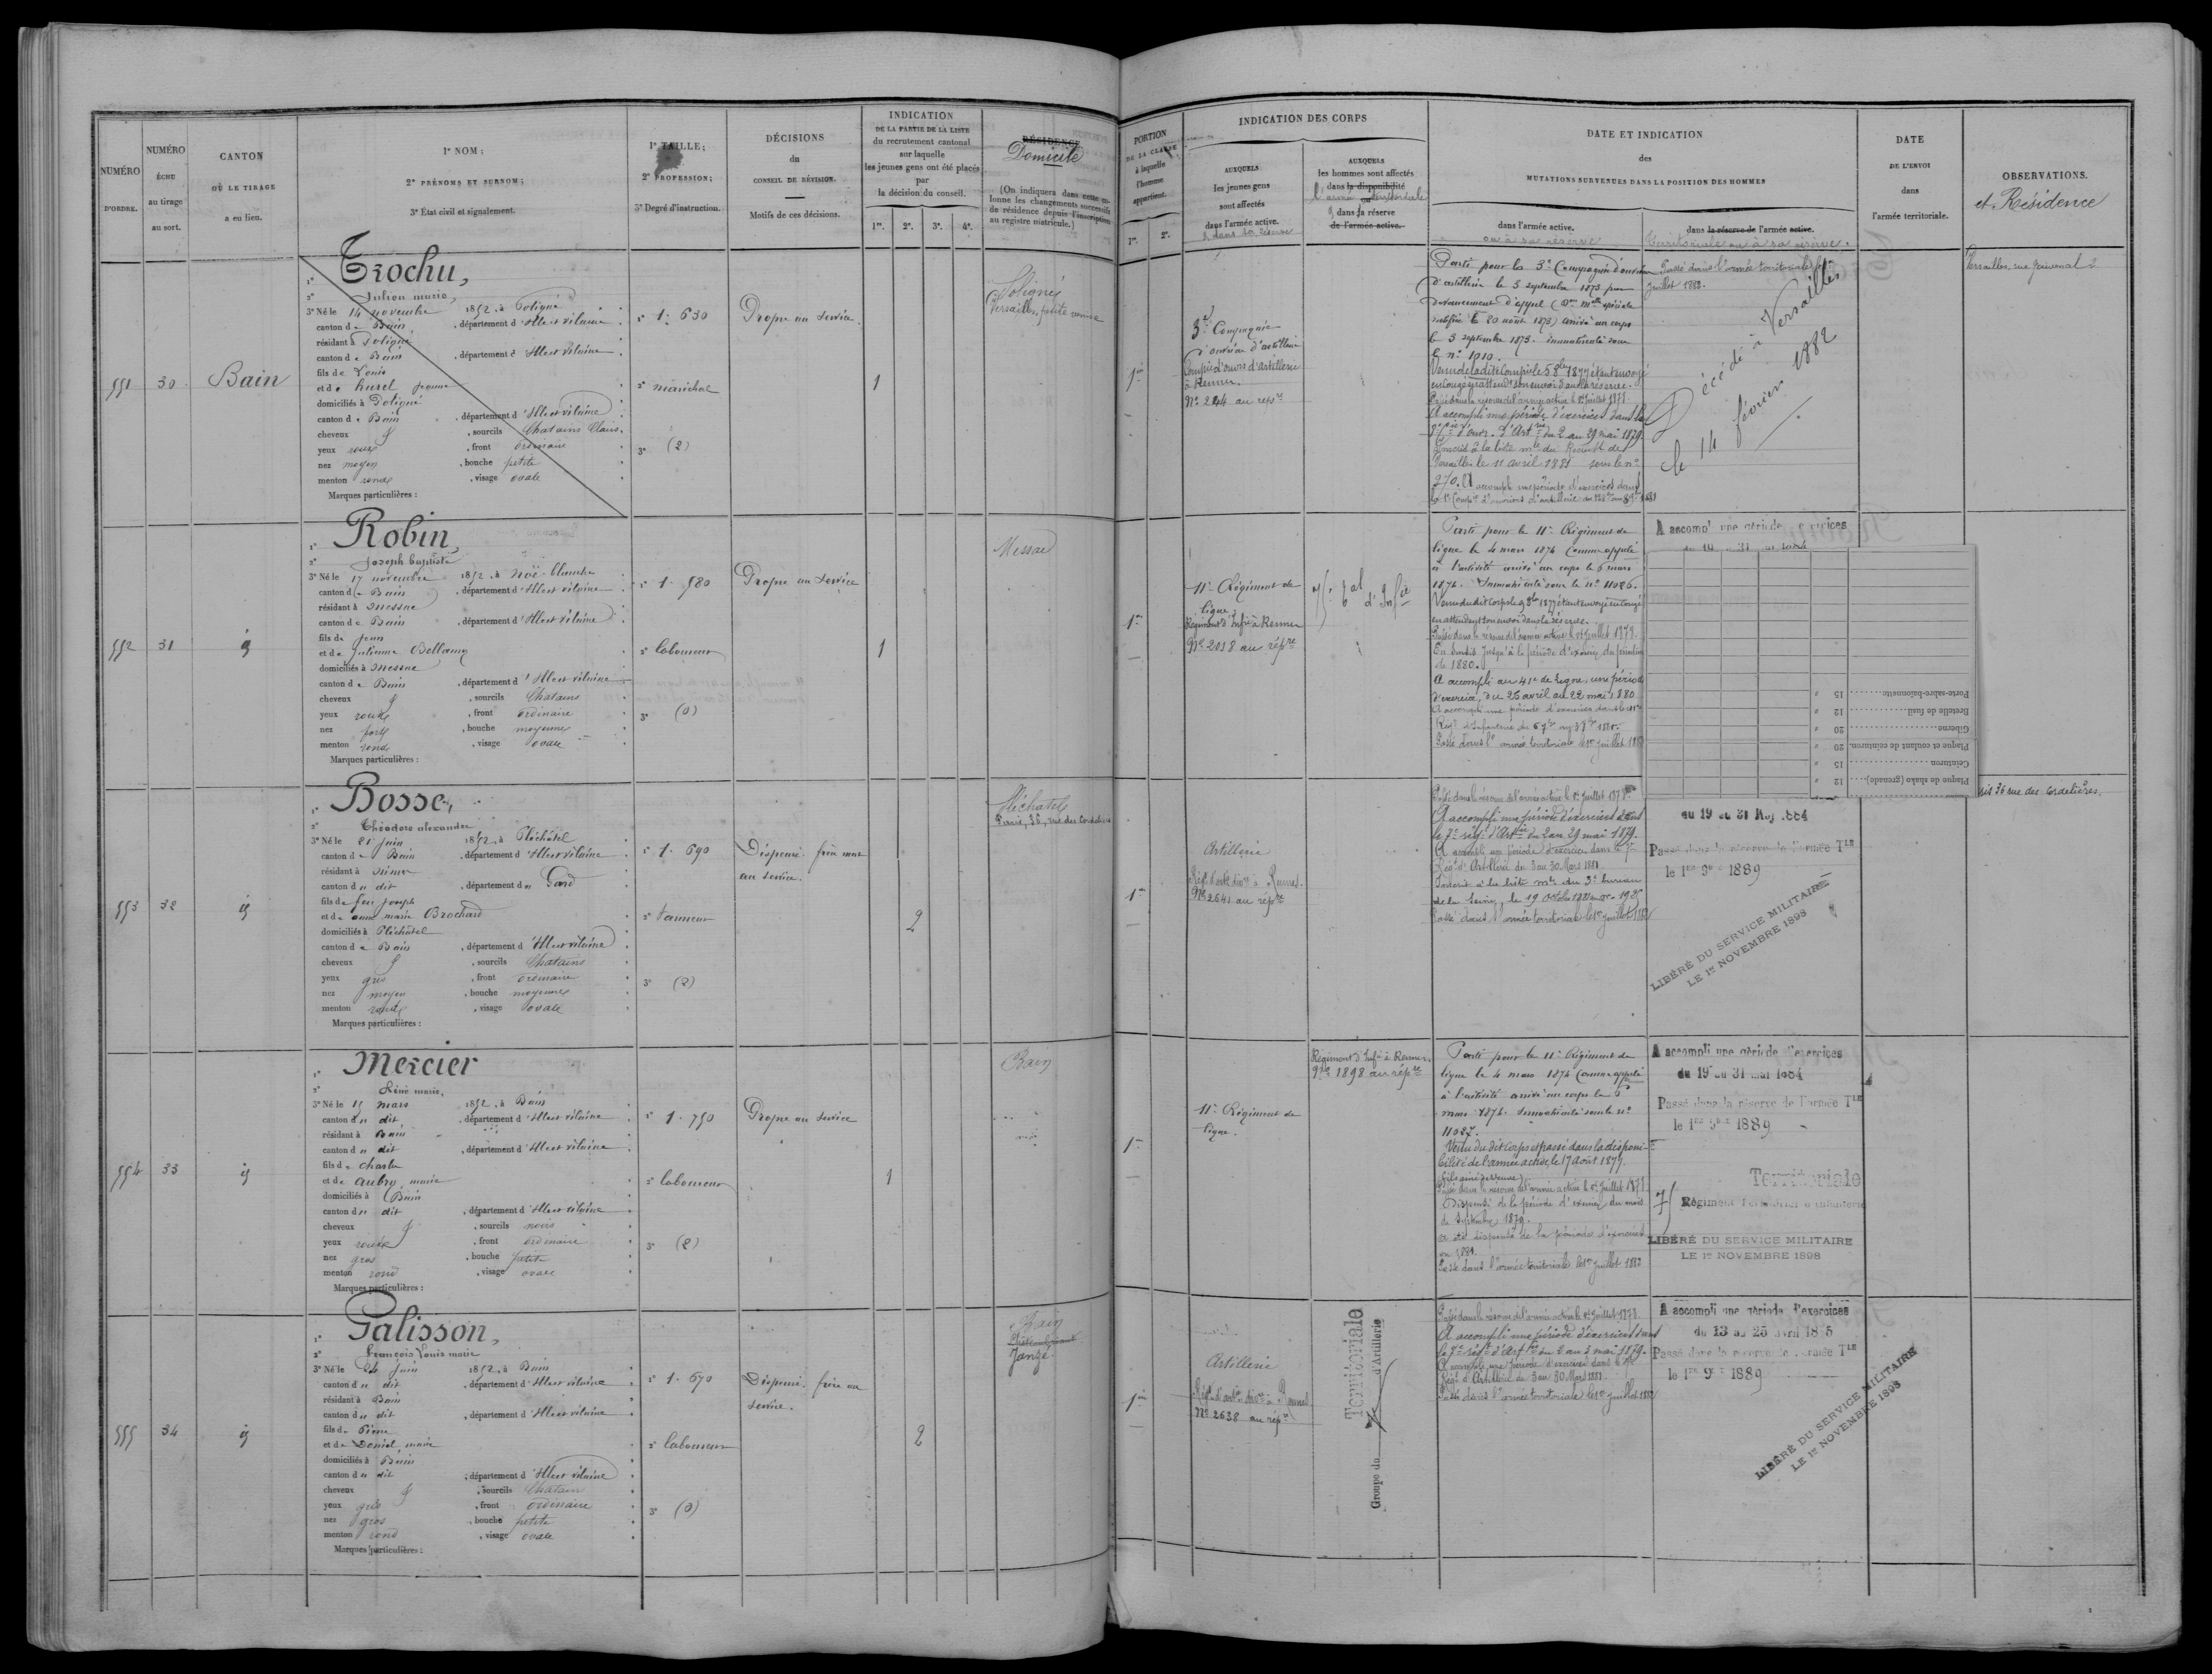 NUMÉRO D'ORDRE.
NUMÉRO ÉCHU au tirage au sort.
CANTON OÙ LE TIRAGE a eu lieu.
1° NOM;
2° PRÉNOMS ET SURNOM;
3° État civil et signalement.
1° TAILLE;
2° PROFESSION;
3° Degré d'instruction.
DÉCISIONS
du
CONSEIL DE RÉVISION.
Motifs de ces décisions.
INDICATION
DE LA PARTIE DE LA LISTE
du recrutement cantonal
sur laquelle
les jeunes gens ont été placés
par
la décision du conseil.
1re. 2e. 3e. 4e.
RÉSIDENCE
Domicile
(On indiquera dans cette colonne les changements successifs de résidence depuis l'inscription au registre matricule.)
551
30
Bain
1° Trochu,
2° Julien marie,
3° Né le 14 novembre 1852, à Poligné
canton de Bain, département d'Ille et vilaine
résidant à Poligné
canton de Bain, département d'Ille et vilaine
fils de Louis
et de hurel jeanne
domiciliés à Poligné
canton de Bain, département d'Ille et vilaine
cheveux & , sourcils Chatains Clairs
yeux roux, front ordinaire
nez moyen, bouche petite
menton rond, visage ovale
Marques particulières :
1° 1. 630
2° maréchal
3° (2)
Propre au service
1
Poligné
Versailles,
552
31
id
1° Robin,
2° Joseph baptiste
3° Né le 17 novembre 1852, à Noë-blanche
canton de Bain, département d'Ille et vilaine
résidant à Messac
canton de Bain, département d'Ille et vilaine
fils de Jean
et de Julienne Bellamy
domiciliés à Messac
canton de Bain, département d'Ille et vilaine
cheveux & , sourcils Chatains
yeux roux, front ordinaire
nez fort, bouche moyenne
menton rond, visage ovale
Marques particulières :
1° 1. 580
2° laboureur
3° (0)
Propre au service
1
Messac
553
32
id
1° Bosse,
2° Théodore alexandre
3° Né le 21 juin 1852, à Pléchâtel
canton de Bain, département d'Ille et vilaine
résidant à Nimes
canton du dit, département du Gard
fils de feu joseph
et de anne marie Brochard
domiciliés à Pléchâtel
canton de Bain, département d'Ille et vilaine
cheveux & , sourcils Chatains
yeux gris, front ordinaire
nez moyen, bouche moyenne
menton rond, visage ovale
Marques particulières :
1° 1. 690
2° tanneur
3° (2)
Dispensé. frère mort
au service.
2
Pléchatel
Paris, 36, rue des Cordelières
554
33
id
1° Mercier
2° Réné marie,
3° Né le 15 mars 1852, à Bain
canton du dit, département d'Ille et vilaine
résidant à Bain
canton du dit, département d'Ille et vilaine
fils de Charles
et de aubry, marie
domiciliés à Bain
canton du dit, département d'Ille et vilaine
cheveux & , sourcils noirs
yeux roux, front ordinaire
nez gros, bouche petite
menton rond, visage ovale
Marques particulières :
1° 1. 750
2° laboureur
3° (2)
Propre au service
1
Bain
555
34
id
1° Galisson,
2° françois Louis marie
3° Né le 24 juin 1852, à Bain
canton du dit, département d'Ille et vilaine
résidant à Bain
canton du dit, département d'Ille et vilaine
fils de Pierre
et de Daniel, marie
domiciliés à Bain
canton du dit, département d'Ille et vilaine
cheveux & , sourcils Chatain
yeux gris, front ordinaire
nez gros, bouche petite
menton rond, visage ovale
Marques particulières :
1° 1. 670
2° laboureur
3° (0)
Dispensé. frère au
service.
2
Bain
Janzé
PORTION
DE LA CLASSE
à laquelle
l'homme
appartient.
1re. 2e.
INDICATION DES CORPS
AUXQUELS
les jeunes gens
sont affectés
dans l'armée active.
& dans sa réserve
AUXQUELS
les hommes sont affectés
dans la disponibilité
l'armée territoriale
& dans la réserve
de l'armée active.
DATE ET INDICATION
des
MUTATIONS SURVENUES DANS LA POSITION DES HOMMES
dans l'armée active.
ou à sa réserve
dans la réserve de l'armée active.
territoriale ou à sa réserve.
DATE
DE L'ENVOI
dans
l'armée territoriale.
OBSERVATIONS.
et Résidence
1re
3e Compagnie
d'ouvriers d'artillerie
Compie d'ouvrs d'artillerie
à Rennes.
No 244 au répre
Parti pour la 3e Compagnie d'ouvriers
d'artillerie le 3 septembre 1873 par
devancement d'appel
notifiée le 20 août 1873) arrivé au corps
le 3 septembre 1873. immatriculé sous
le n° 1910.
Venu de ladite Compie le 5 8bre 1877 étant envoyé
en congé en attendt son envoi dans la réserve.
Passé dans la réserve de l'armée active le 1er juillet 1878.
A accompli une période d'exercices dans la
d'ouvr. d'Artie du 2 au 29 mai 1879.
Inscrit à la liste mle du Recrutt de
Versailles le 11 avril 1881 sous le n°
270. A accompli une période d'exercices dans
Passé dans l'armée territoriale le 1er
juillet 1882.
Décédé à Versailles
le 14 février 1882
Versailles, rue Juvenal 2
1re
11e Régiment de
ligne.
Régiment d'Infie à Rennes
No 2018 au répre
75e tal d'Infie
Parti pour le 11e Régiment de
ligne le 4 mars 1874 Comme appelé
à l'activité arrivé au corps le 6 mars
1874. Immatriculé sous le n° 11026.
Venu du dit Corps le 9 8bre 1877 étant envoyé en Congé
en attendant son envoi dans la réserve.
Passé dans la réserve de l'armée active le 1er juillet 1878.
En sursis jusqu'à la période d'exercice du printemps
de 1880.
A accompli au 41e de Ligne, une période
d'exercice, du 26 avril au 22 mai 1880
A accompli une période d'exercices dans le
Passé dans l'armée territoriale le 1er juillet 1882
A accompli une période d'exercices
Porte-sabre-baïonnette 15 »
Bretelle de fusil 12 »
Giberne 20 »
Plaque et coulant de ceinturon. 20 »
Ceinturon 15 »
Plaque de shako (grenade) 12 »
1re
Artillerie
Régt d'artie divre à Rennes.
No 2641 au répre
Passé dans la réserve de l'armée active le 1er juillet 1878.
A accompli une période d'exercices dans
le 7e régt d'Artie du 2 au 29 mai 1879.
A accompli une période d'exercices dans le 7e
Régt d'Artillerie du 3 au 30 Mars 1881.
Inscrit à la liste mle du 3e bureau
de la Seine, le 19 Octobre 1881
Passé dans l'armée territoriale le 1er juillet 1882
du 19 au 31 Mai 1884
Passé dans la réserve de l'armée TLE
le 1er 9bre 1889
LIBÉRÉ DU SERVICE MILITAIRE
LE 1er NOVEMBRE 1898
36 rue des Cordelières.
1re
11e Régiment de
ligne.
Régiment d'Infie à Rennes.
No 1898 au répre
Parti pour le 11e Régiment de
ligne le 4 mars 1874 Comme appelé
à l'activité arrivé au corps le 6
mars 1874. Immatriculé sous le n°
11027.
Venu du dit Corps et passé dans la disponi-
bilité de l'armée active, le 17 août 1877.
(fils ainé de veuve)
Passé dans la réserve de l'armée active le 1er juillet 1878
Dispensé de la période d'exercice du mois
de Septembre 1879.
a été dispensé de la période d'exercices
en 1881.
Passé dans l'armée territoriale le 1er juillet 1882
A accompli une période d'exercices
du 19 au 31 mai 1884
Passé dans la réserve de l'armée TLE
le 1er 9bre 1889
Territoriale
75 Régiment Territorial d'Infanterie
LIBÉRÉ DU SERVICE MILITAIRE
LE 1er NOVEMBRE 1898
1re
Artillerie
Régt d'artie divre à Rennes
No 2638 au répre
Territoriale
Groupe du d'Artillerie
Passé dans la réserve de l'armée active le 1er juillet 1878.
A accompli une période d'exercices dans
le 7e régt d'Artie du 2 au 3 mai 1879.
A accompli une période d'exercices dans le
Régt d'Artillerie du 3 au 30 Mars 1881.
Passé dans l'armée territoriale le 1er juillet 1882
A accompli une période d'exercices
du 13 au 25 avril 1885
Passé dans la réserve de l'armée TLE
le 1er 9bre 1889
LIBÉRÉ DU SERVICE MILITAIRE
LE 1er NOVEMBRE 1898